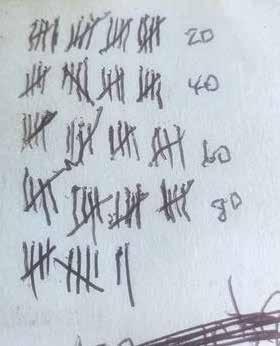 𝍸 𝍸 𝍸 𝍸 20
𝍸 𝍸 𝍸 𝍸 40
𝍸 𝍸 𝍸 𝍸 60
𝍸 𝍸 𝍸 𝍸 80
𝍸 𝍸 ||